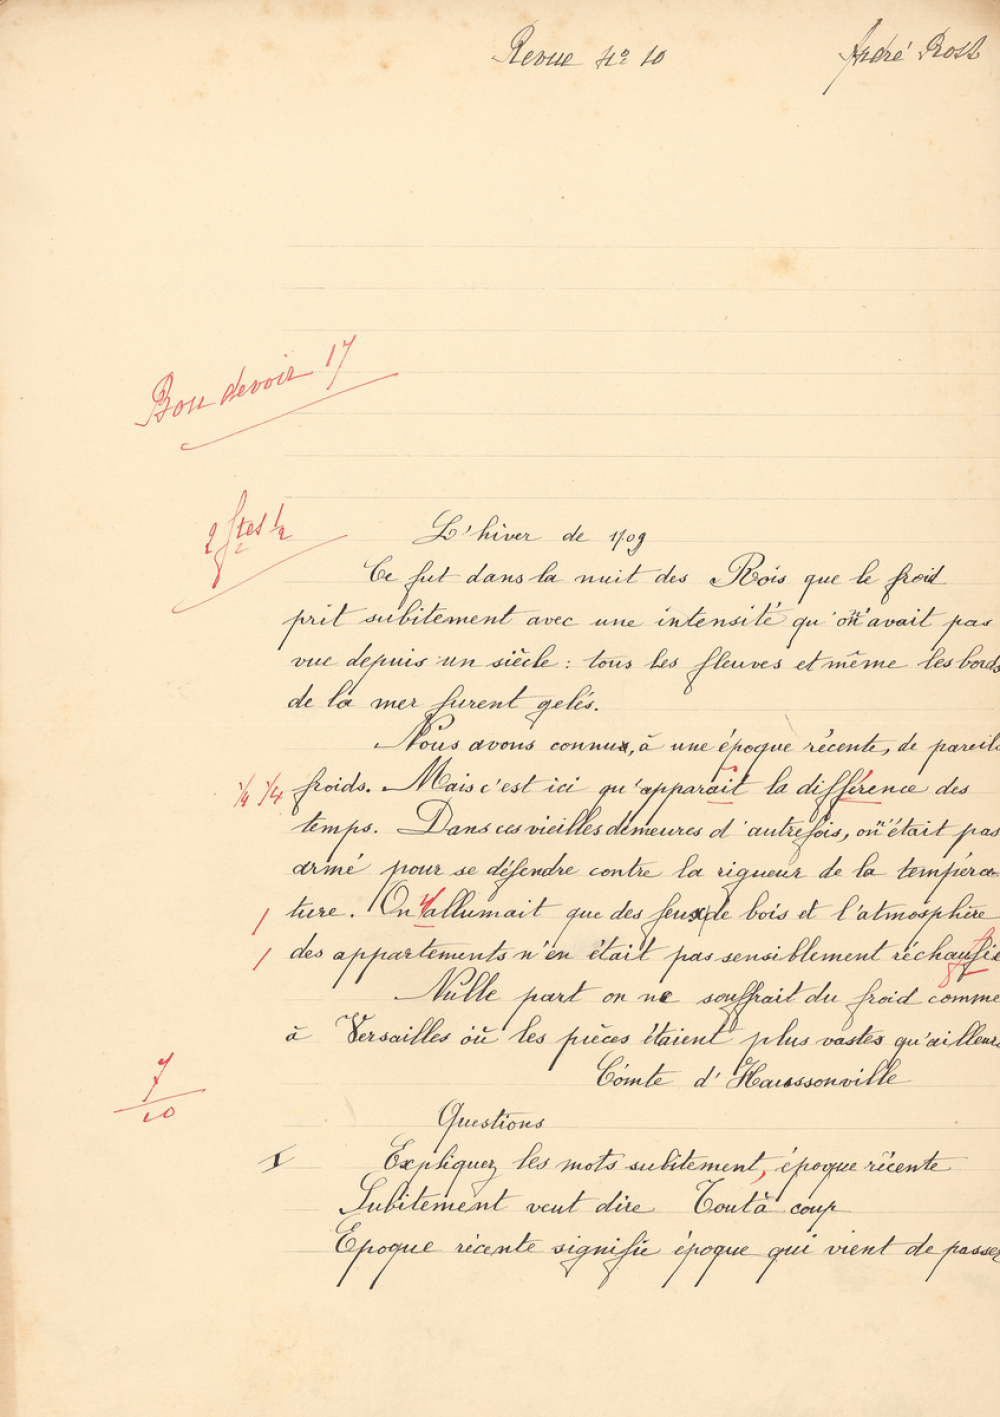 Revue No 10
André Prost
Bon devoir 17
2 ftes 1/2
L'hiver de 1709
Ce fut dans la nuit des Rois que le froid
prit subitement avec une intensité qu'on n'avait pas
vue depuis un siècle : tous les fleuves et même les bords
de la mer furent gelés.
Nous avons connus, à une époque récente, de pareils
1/4 1/4 froids. Mais c'est ici qu'apparaît la différence des
temps. Dans ces vieilles demeures d'autrefois, on n'était pas
armé pour se défendre contre la rigueur de la tempéra
1 ture. On n'allumait que des feux de bois et l'atmosphère
1 des appartements n'en était pas sensiblement réchauffée
Nulle part on ne souffrait du froid comme
à Versailles où les pièces étaient plus vastes qu'ailleurs
Comte d'Haussonville
7/10
Questions
I Expliquez les mots subitement, époque récente
Subitement veut dire Tout à coup
Epoque récente signifie époque qui vient de passer